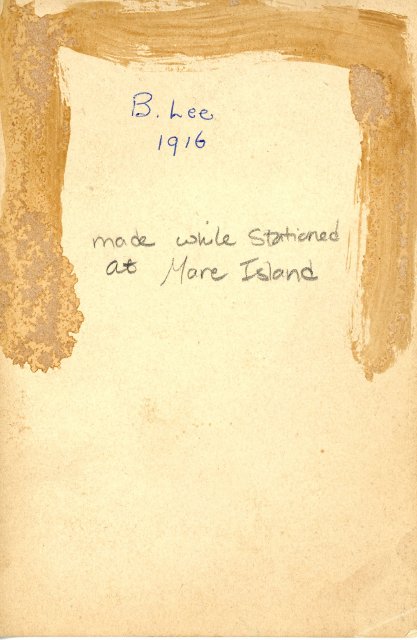 B. Lee
1916
made while Stationed
at Mare Island